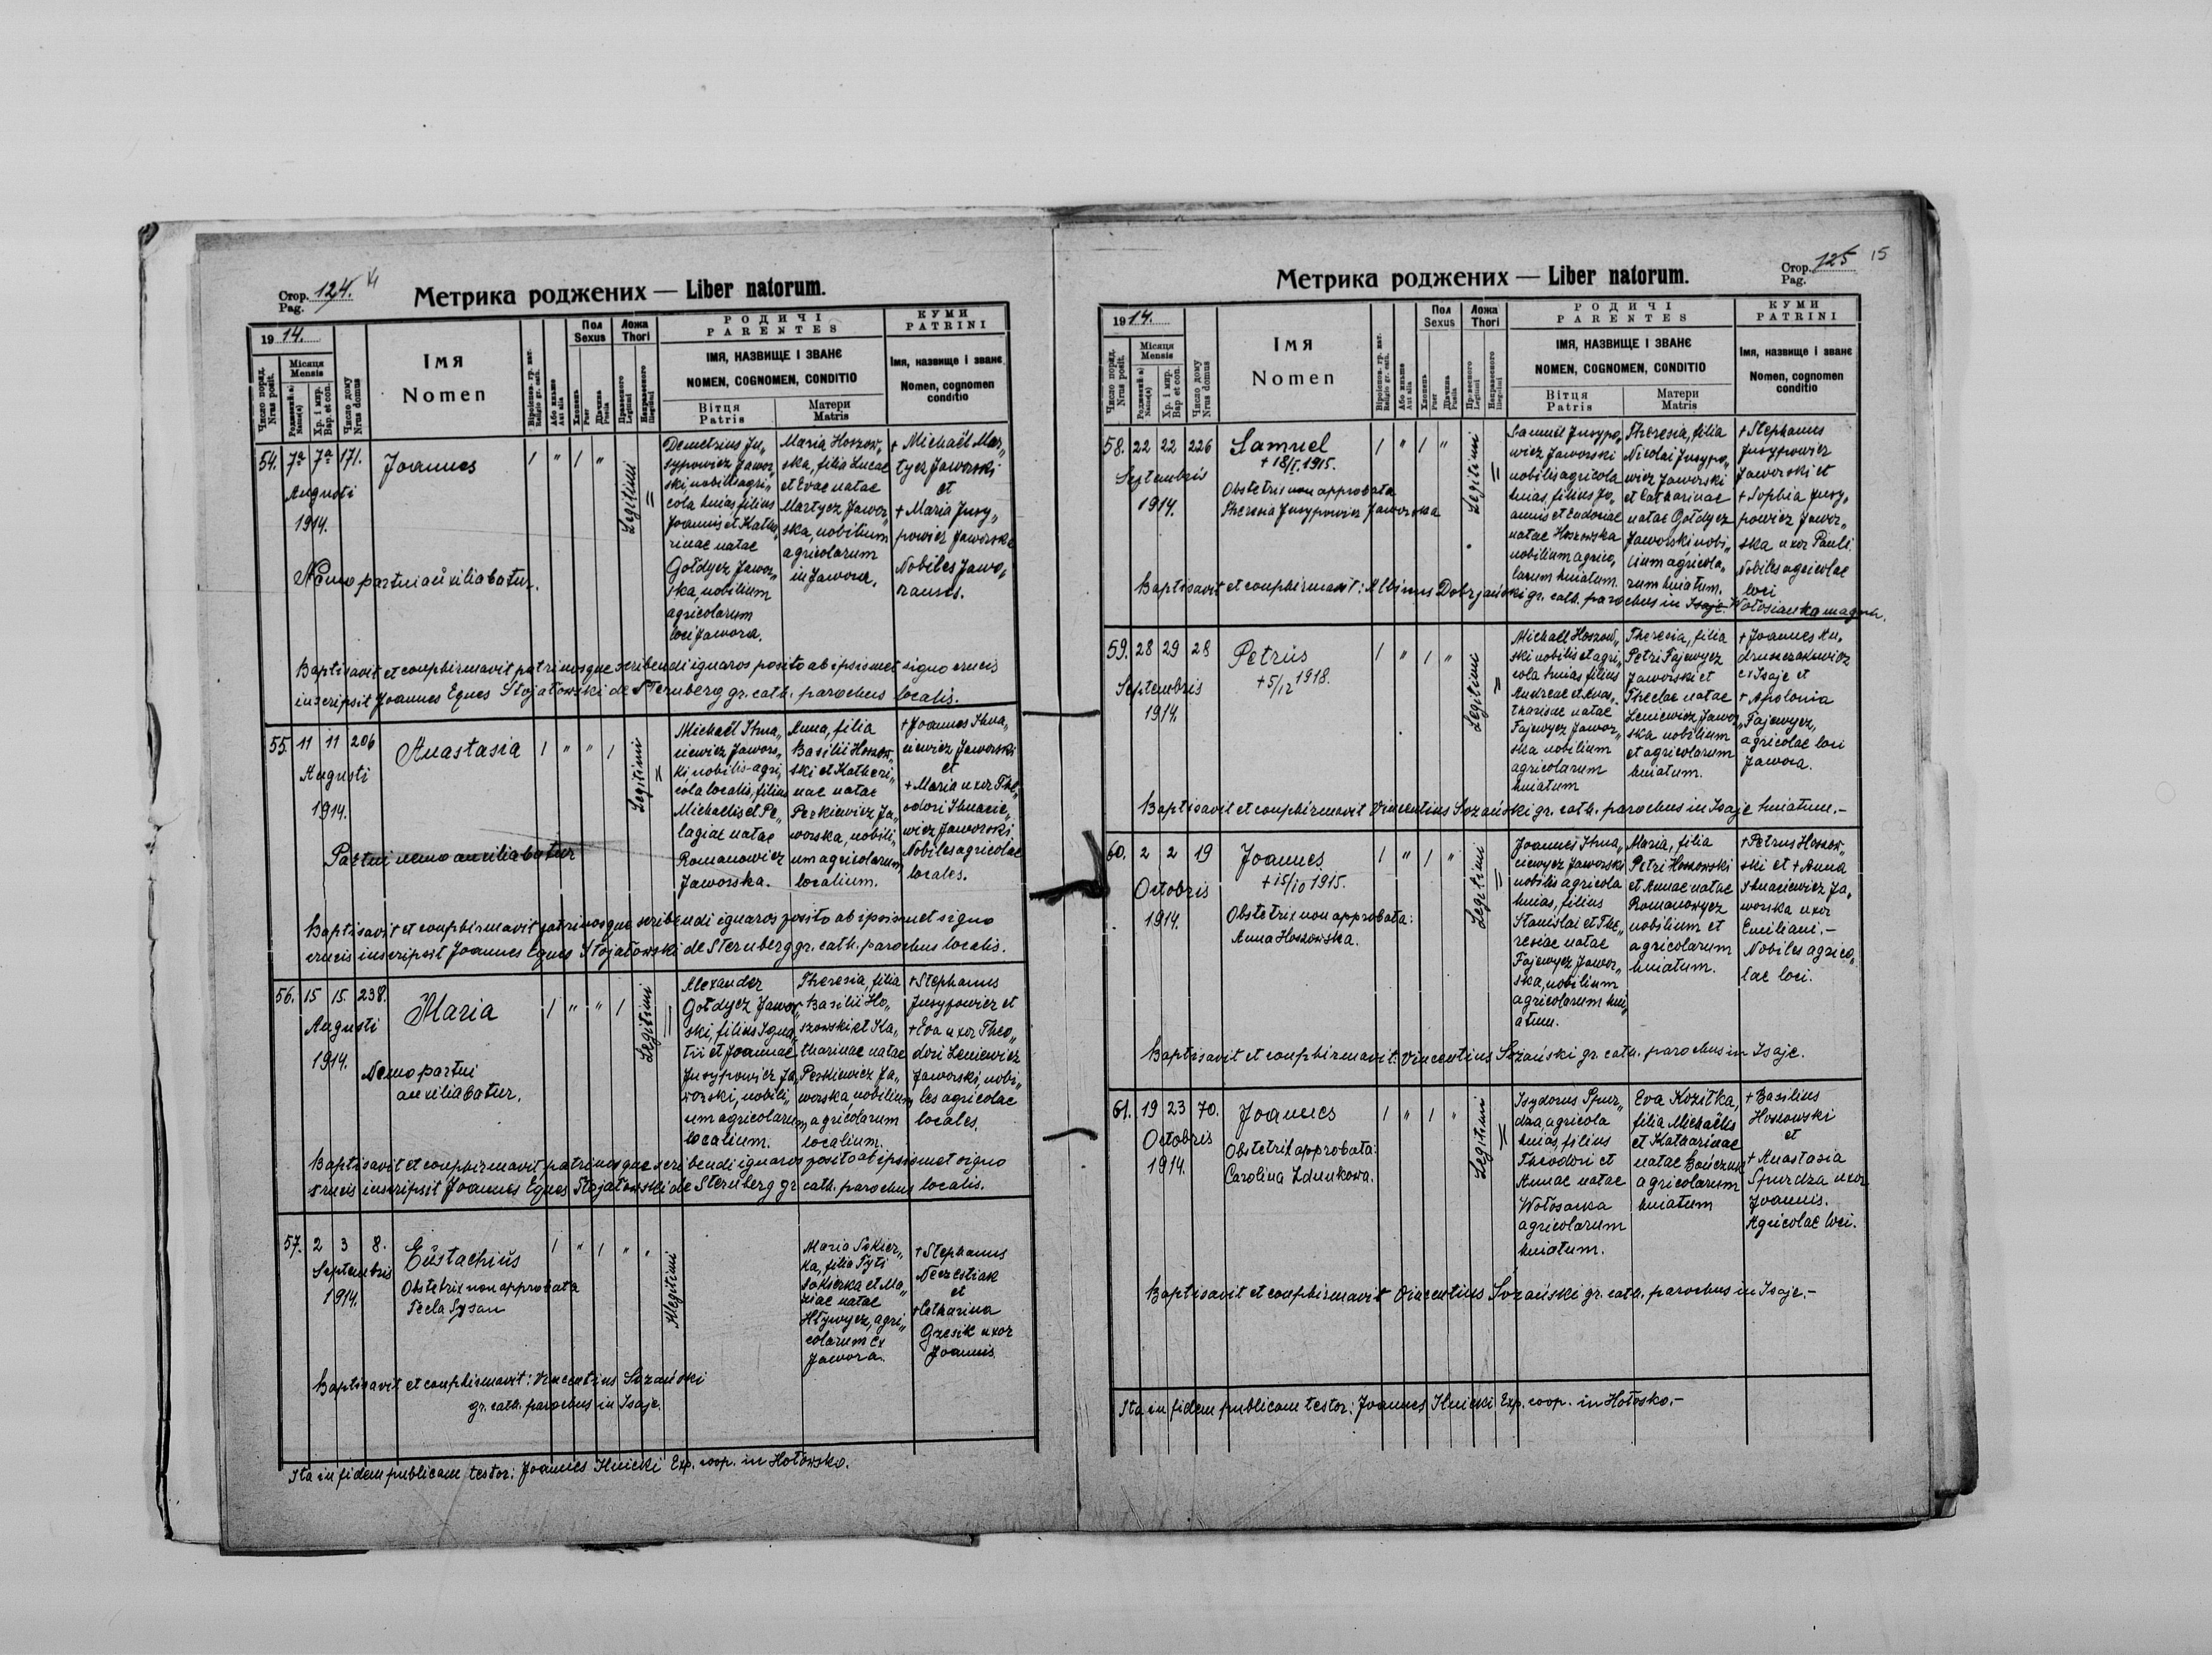 Стор. 124.
Pag.
Метрика роджених — Liber natorum.
1914.
Число поряд.
Nrus posit.
Місяця
Mensis
Хр. і мир.
Bap. et con.
Число дому
Nrus domus
Імя
Nomen
Religio gr. cath.
Aut alia
Пол
Sexus
Хлопець
Puer
Дівчина
Puella
Ложа
Thori
Правесного
Legitimi
Неправесного
Illegitimi
РОДИЧІ
PARENTES
ІМЯ, НАЗВИЩЕ І ЗВАНЄ
NOMEN, COGNOMEN, CONDITIO
Вітця
Patris
Матери
Matris
КУМИ
PATRINI
Імя, назвище і званє
Nomen, cognomen
conditio
54. 7a 7a 171. Joannes 1 " 1 " Legitimi
Augusti
1914.
Nemo partui auxiliabatur.
Demetrius Ju„
sypowicz Jawor„
ski, nobilis agri„
cola huias, filius
Joannis et Katha„
rinae natae
Gołdycz Jawor„
ska, nobilium
agricolarum
loci Jawora.
Maria Hoszow„
ska, filia Lucae
et Evae natae
Martycz Jawor„
ska, nobilium
agricolarum
in Jawora.
+ Michaël Mar„
tycz Jaworski
et
+ Maria Jusy„
powicz Jaworska
Nobiles Jawo„
ranses.
Baptisavit et conphirmavit patrinosque scribendi ignaros posito ab ipsismet signo crucis
inscripsit Joannes Eques Stojałowski de Sternberg gr. cath. parochus localis.
55. 11 11 206 Anastasia 1 " " 1 Legitimi
Augusti
1914.
Partui nemo auxiliabatur
Michaël Ihna„
ciewicz Jawors„
ki, nobilis agri„
cola localis, filius
Michaelis et Pe„
lagiae natae
Romanowicz
Jaworska.
Anna, filia
Basilii Hoszow„
ski et Katheri„
nae natae
Perkiewicz Ja„
worska, nobili„
um agricolarum
localium.
+ Joannes Ihna„
ciewicz Jaworski
et
+ Maria uxor The„
odori Ihnacie„
wicz Jaworski
Nobiles agricolae
locales.
Baptisavit et conphirmavit patrinosque scribendi ignaros posito ab ipsismet signo
crucis inscripsit Joannes Eques Stojałowski de Sternberg gr. cath. parochus localis.
56. 15 15. 238. Maria 1 " " 1 Legitimi
Augusti
1914.
Nemo partui
auxiliabatur.
Alexander
Gołdycz Jawor„
ski, filius Igna„
tii et Joannae
Jusypowicz Ja„
worski, nobili„
um agricolarum
localium.
Theresia, filia
Basilii Ho„
szowski et Ka„
tharinae natae
Perkiewicz Ja„
worska, nobilium
agricolarum
localium.
+ Stephanus
Jusypowicz et
+ Eva uxor Theo„
dori Leniewicz
Jaworski, nobi„
les agricolae
locales.
Baptisavit et conphirmavit patrinosque scribendi ignaros posito ab ipsismet signo
crucis inscripsit Joannes Eques Stojałowski de Sternberg gr cath. parochus localis.
57. 2 3 8. Eustachius 1 " 1 " " Illegitimi
Septembris
1914.
Obstetrix non approbata
Tecla Sysan
Maria Sokier„
ka, filia Tyti
Sokierka et Ma„
riae natae
Hływycz, agri„
colarum ex
Jawora.
+ Stephanus
Neczestiak
et
+ Catharina
Grzesik uxor
Joannis.
Baptisavit et conphirmavit: Vincentius Sozański
gr. cath. parochus in Isaje.
Ita in fidem publicam testor: Joannes Ilnicki Exp. coop. in Hołowsko.
Стор. 125 15
Pag.
Метрика роджених — Liber natorum.
1914.
Число поряд.
Nrus posit.
Місяця
Mensis
Хр. і мир.
Bap et con.
Число дому
Nrus domus
Імя
Nomen
Religio gr. cath.
Aut alia
Пол
Sexus
Хлопець
Puer
Дівчина
Puella
Ложа
Thori
Правесного
Legitimi
Неправесного
Illegitimi
РОДИЧІ
PARENTES
ІМЯ, НАЗВИЩЕ І ЗВАНЄ
NOMEN, COGNOMEN, CONDITIO
Вітця
Patris
Матери
Matris
КУМИ
PATRINI
Імя, назвище і званє
Nomen, cognomen
conditio
58. 22 22 226 Samuel 1 " 1 " Legitimi
+ 18/I 1915.
Septembris
1914.
Obstetrix non approbata
Theresia Jusypowicz Jaworska
Samuël Jusypo„
wicz Jaworski
nobilis agricola
huias, filius Jo„
annis et Eudoxiae
natae Hoszowska
nobilium agrico„
larum huiatum.
Theresia, filia
Nicolai Jusypo„
wicz Jaworski
et Catharinae
natae Gołdycz
Jaworski nobi„
lium agricola„
rum huiatum.
+ Stephanus
Jusypowicz
Jaworski et
+ Sophia Jusy„
powicz Jawor„
ska uxor Pauli.
Nobiles agricolae
loci
Baptisavit et conphirmavit: Albinus Dobrjański gr. cath. parochus in Isaje. Wołosianka magna.
59. 28 29 28 Petrus 1 " 1 " Legitimi
+ 5/12 1918.
Septembris
1914.
Michaël Hoszow„
ski nobilis et agri„
cola huias, filius
Andreae et Anas„
thasiae natae
Fajewycz Jawor„
ska nobilium
agricolarum
huiatum
Theresia, filia
Petri Fajewycz
Jaworski et
Theclae natae
Leniewicz Jawor„
ska nobilium
et agricolarum
huiatum.
+ Joannes An„
druszczakiewicz
ex Isaje et
+ Apolonia
Fajewycz,
agricolae loci
Jawora.
Baptisavit et conphirmavit Vincentius Sozański gr. cath. parochus in Isaje huiatum.-
60. 2 2 19 Joannes 1 " 1 " Legitimi
+ 15/10 1915.
Octobris
1914.
Obstetrix non approbata:
Anna Hoszowska.
Joannes Ihna„
ciewycz Jaworski
nobilis agricola
huias, filius
Stanislai et The„
resiae natae
Fajewycz Jawor„
ska, nobilium
agricolarum hui„
atum.
Maria, filia
Petri Hoszowski
et Annae natae
Romanowycz
nobilium et
agricolarum
huiatum.
+ Petrus Hoszow„
ski et + Anna
Ihnaciewicz Ja„
worska uxor
Emiliani.-
Nobiles agrico„
lae loci.
Baptisavit et conphirmavit: Vincentius Sozański gr. cath. parochus in Isaje.
61. 19 23 70. Joannes 1 " 1 " Legitimi
Octobris
1914.
Obstetrix approbata:
Carolina Zdunkowa.
Isydorus Spur„
dza, agricola
huias, filius
Theodori et
Annae natae
Wołosanka
agricolarum
huiatum.
Eva Kozitka,
filia Michaëlis
et Katharinae
natae Bończuk
agricolarum
huiatum
+ Basilius
Hoszowski
et
+ Anastasia
Spurdza uxor
Joannis.
Agricolae loci.
Baptisavit et conphirmavit Vincentius Sozański gr. cath. parochus in Isaje.-
Ita in fidem publicam testor: Joannes Ilnicki Exp. coop. in Hołosko.-